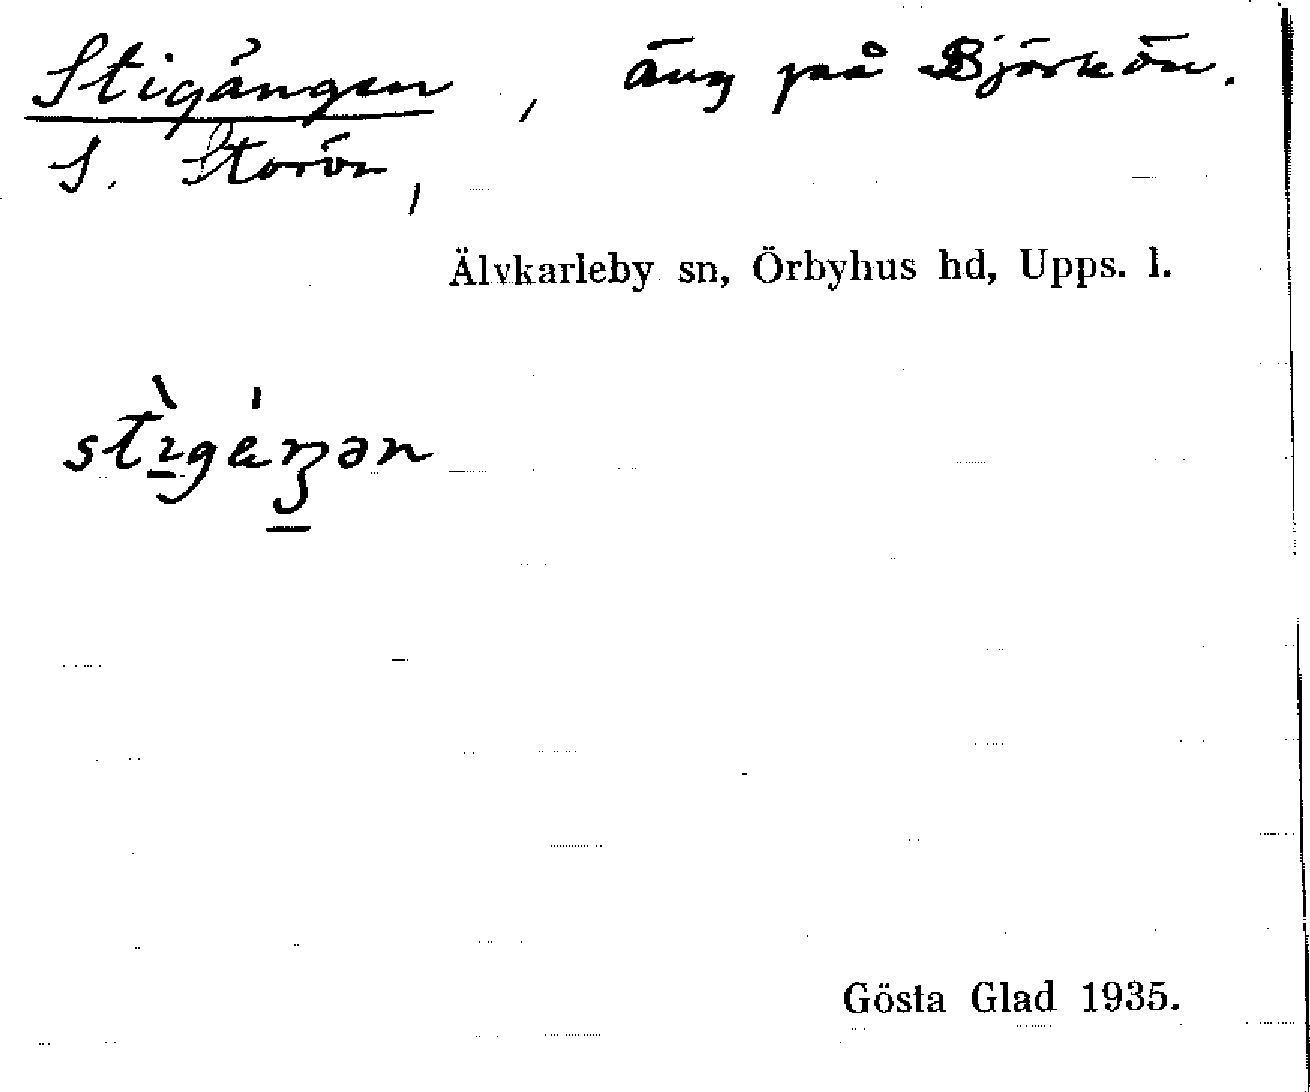 Stigången, äng på Björkön.
S. Storön,
Älvkarleby sn, Örbyhus hd, Upps. l.
Gösta Glad 1935.